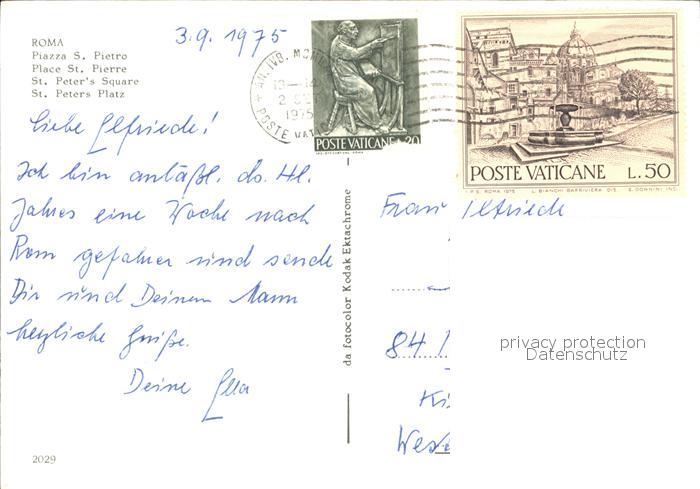 ROMA
Piazza S. Pietro
Place St. Pierre
St. Peter's Square
St. Peters Platz
3.9. 1975
Liebe Elfriede!
Ich bin anläßl. ds. Hl.
Jahres eine Woche nach
Rom gefahren und sende
Dir und Deinem Mann
herzliche Grüße.
Deine Ella
2029
da fotocolor Kodak Ektachrome
1975
POSTE VATICANE 20
POSTE VATICANE L.50
I.P.S. ROMA 1975 L. BIANCHI BARRIVIERA DIS. S. DONNINI INC.
Frau Elfriede
84
privacy protection
Datenschutz